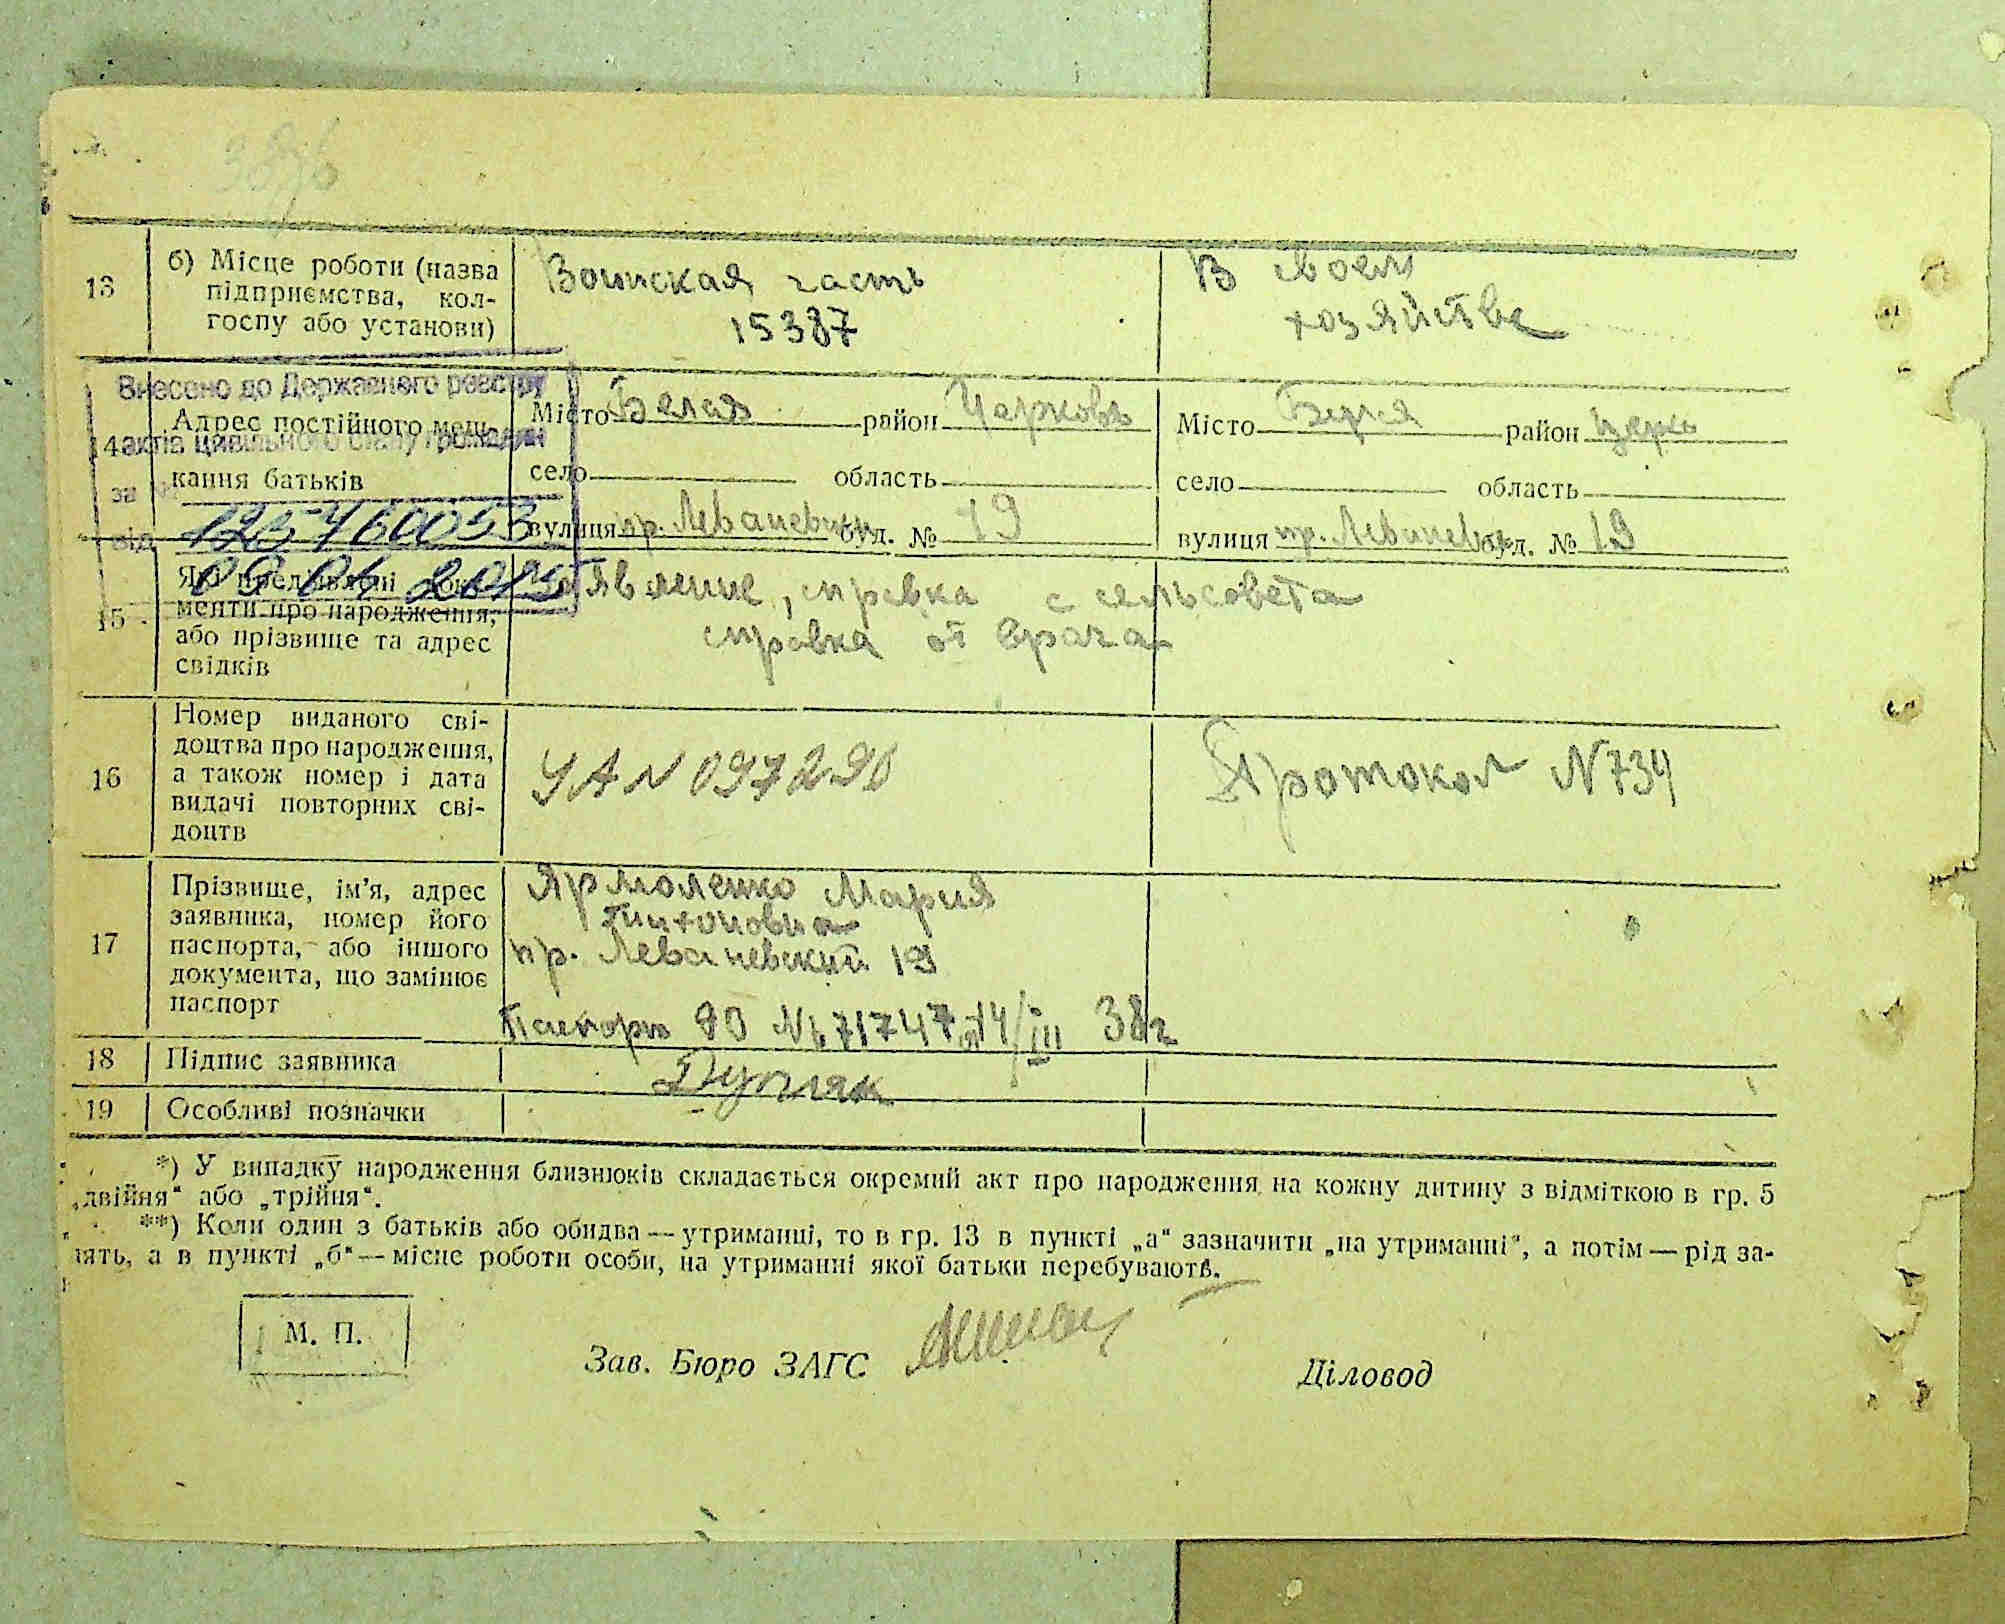 13
б) Місце роботи (назва
підприємства, кол-
госпу або установи)
Воинская часть
15387
В своем
хозяйстве
Внесено до Державного реєстру
актів цивільного стану громадян
за №
125460053
від
14
Адрес постійного меш-
кання батьків
Місто Белая район Церковь
село область
вулиця пр. Леваневский буд. № 19
Місто Белая район Церк
село область
вулиця пр. Леваневск буд. № 19
15
Які пред'явлені доку-
менти про народження,
або прізвище та адрес
свідків
заявление, справка с сельсовета
справка от врача
16
Номер виданого сві-
доцтва про народження,
а також номер і дата
видачі повторних сві-
доцтв
УА N 097290
Протокол N 734
17
Прізвище, ім'я, адрес
заявника, номер його
паспорта, або іншого
документа, що замінює
паспорт
Ярмоленко Мария
пр. Леваневский 19
Паспорт 14/III 38г
18
Підпис заявника
19
Особливі позначки
*) У випадку народження близнюків складається окремий акт про народження на кожну дитину з відміткою в гр. 5
„двійня“ або „трійня“.
**) Коли один з батьків або обидва — утриманці, то в гр. 13 в пункті „а“ зазначити „на утриманні“, а потім — рід за-
нять, а в пункті „б“ — місце роботи особи, на утриманні якої батьки перебувають.
М. П.
Зав. Бюро ЗАГС
Діловод